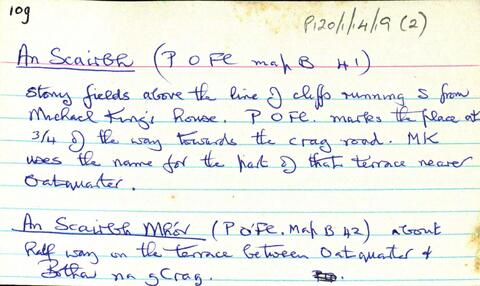 10g
P120/1/4/9 (2)
An Scairbh (P O Fl map B 41)
Stony fields above the line of cliffs running S from
Michael King's house. P O Fl. marks the place at
3/4 of the way towards the crag road. MK
uses the name for the part of that terrace nearer
Oatquarter.
An Scairbh Mhór (P O'Fl. Map B 42) about
half way on the terrace between Oatquarter &
Bóthar na gCrag.